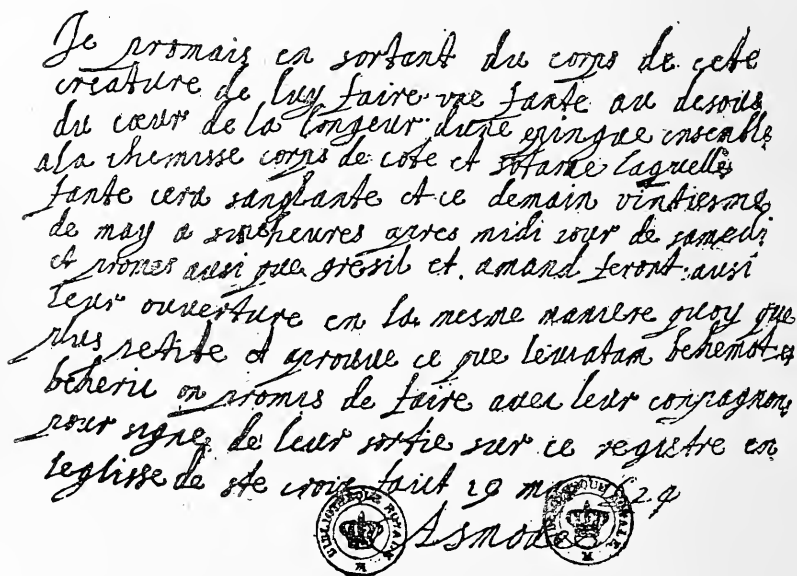 Je promais en sortant du corps de cete
créature de luy faire une fante au desous
du cœur de la longeur dune epingue ensemble
a la chemisse corps de cote et sotane laquelle
fante cera sanglante et ce demain vintiesme
de may a sinc heures apres midi jour de samedi
et promes ausi que gresil et amand feront ausi
leur ouverture en la mesme maniere quoy que
plus petite et aprouve ce que leviatam behemot
beherie on promis de faire avec leur compagnon
pour signe de leur sortie sur ce registre en
leglisse de ste croix fait 19 may
Asmodee
BIBLIOTHEQUE ROYALE
BIBLIOTHEQUE ROYALE